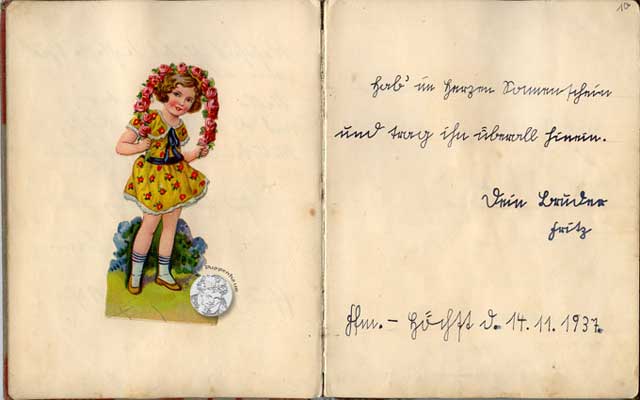 10
Hab' im Herzen Sonnenschein
und trag ihn überall hinein.
Dein Bruder
Fritz
Ffm. – Höchst d. 14. 11. 1937.
Puppenhaus